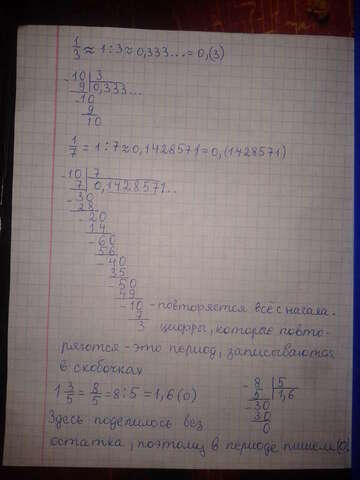 1/3 ≈ 1:3 ≈ 0,333... = 0,(3)
-10 | 3
9 | 0,333...
-10
9
10
1/7 = 1:7 ≈ 0,1428571 = 0,(1428571)
-10 | 7
7 | 0,1428571...
-30
28
-20
14
-60
56
-40
35
-50
49
-10 - повторяется всё с начала.
7
3 цифры, которые повто-
ряются - это период, записываются
в скобочках
1 3/5 = 8/5 = 8:5 = 1,6(0)
-8 | 5
5 | 1,6
-30
30
0
Здесь поделилось без
остатка, поэтому в периоде пишем (0).